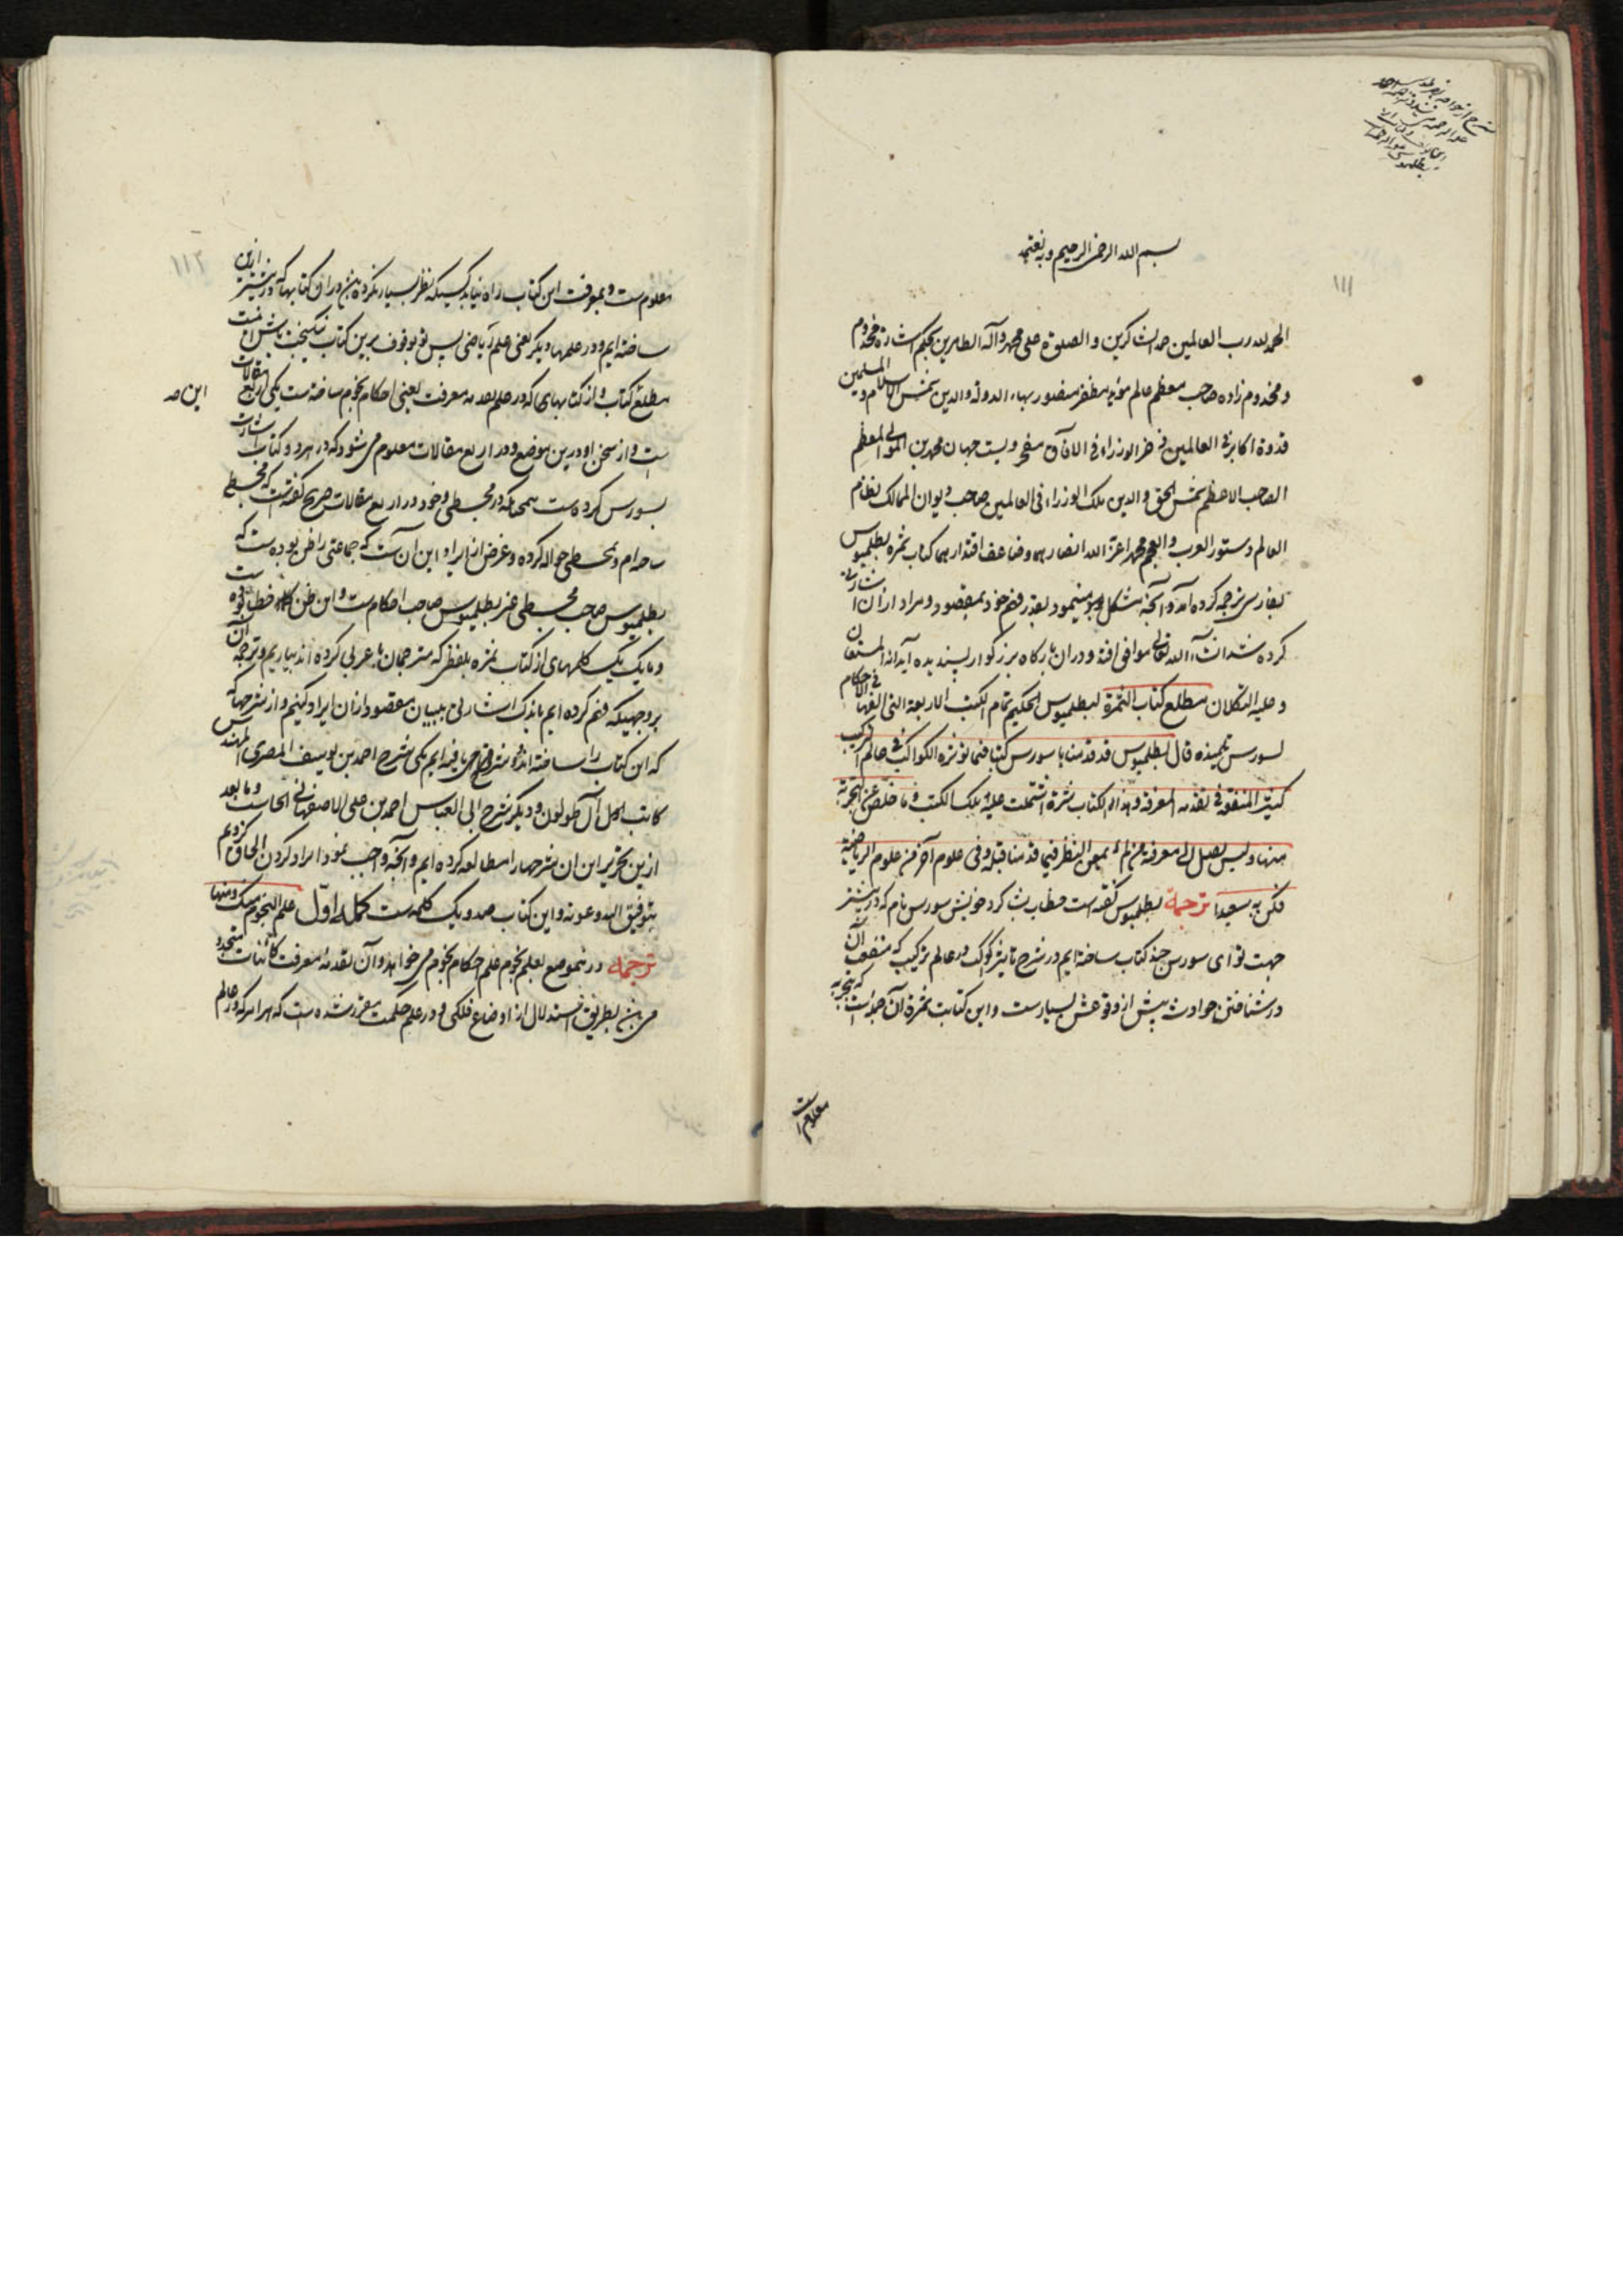 بسم الله الرحمن الرحیم وبه نعتمد
الحمد لله رب العالمین حمد الشاکرین والصلوة علی محمد وآله الطاهرین بحکم اشارة مخدوم
و مخدوم زاده صاحب معظم عالم مؤید مظفر منصور بهاء الدولة والدین شمس الاسلام و المسلمین
قدوة اکابر فی العالمین فخر الوزراء فی الآفاق مفخر و پشت جهان محمد بن المولی المعظم
الصاحب الاعظم شمس الحق والدین ملک الوزراء فی العالمین صاحب دیوان الممالک نظام
العالم دستور العرب والعجم محمد اعز الله انصارهما وضاعف اقتدارهما کتاب ثمره بطلمیوس
بفارسی ترجمه کرده آمد و آنچه مشکل می‌نمود بقدر فهم خود بمقصود و مراد از آن اشارتی
کرده شد ان شاء الله تعالی موافق افتد و در آن بارگاه بزرگوار پسندیده آید انه المستعان
و علیه التکلان مطلع کتاب الثمرة لبطلمیوس الحکیم تمام الکتب الاربعة التی الفها فی الاحکام
لسورس تلمیذه قال بطلمیوس قد قدمنا یا سورس کتبا فیما تؤثره الکواکب فی عالم الترکیب
کثیر المنفعة فی تقدمة المعرفة وهذا الکتاب ثمرة اشتملت علیه تلک الکتب وما خلص عن التجربة
منها ولیس یصل الی معرفته من لم یمعن النظر فیما قدمنا قبله وفی علوم آخر من علوم الریاضیة
فکن به سعیدا ترجمه بطلمیوس گفته است خطاب بشاگرد خویش سورس نام که در پیشتر
جهت تو ای سورس چند کتاب ساخته‌ایم در شرح تاثیر کواکب در عالم ترکیب که منفعت آن
در شناختن حوادث پیش از وقوعش بسیارست و این کتاب ثمره آن جمله است که بتجربه
معلوم است
۱۱۱
معلوم ست و بمعرفت این کتاب راه نیابد کسیکه نظر بسیار نکرده باشد در آن کتابها که در پیشتر ازین
ساخته‌ایم و در علمهاء دیگر یعنی علم ریاضی پس تو بوقوف برین کتاب نیکبخت باش اینست
مطلع کتاب و از کتابهای که در علم تقدمه معرفت یعنی احکام نجوم ساخته ست یکی اربع مقالات
است و از سخن او درین موضع و در اربع مقالات معلوم می‌شود که در هر دو کتاب اشارت
بسورس کرده ست همچنانکه در مجسطی و خود در اربع مقالات صریح گفتست که مجسطی
ساخته‌ام و بمجسطی حواله کرده و غرض از ایراد این آن ست که جماعتی را ظن بوده ست که
بطلمیوس صاحب مجسطی غیر بطلمیوس صاحب احکام ست و این ظن خطا بوده ست
و ما یک یک کلمهای از کتاب ثمره بلفظی که مترجمان با عربی کرده‌اند بیاریم و ترجمه آن
بروجهیکه فهم کرده‌ایم باندک اشارتی ببیان مقصود از آن ایراد کنیم و از شرحها که
که این کتاب را ساخته‌اند دو شرح یافته‌ایم یکی شرح احمد بن یوسف المصری المهندس
کاتب آل طولون و دیگر شرح ابی العباس احمد بن علی الاصفهانی الحاسب و ما بعد
ازین تحریر این شرحها را مطالعه کرده‌ایم و آنچه واجب نمود ایراد کردن الحاق کردیم
بتوفیق الله وعونه و این کتاب صد و یک کلمه ست کلمه اوّل علم النجوم منک ومنها
ترجمه درین موضع بعلم نجوم علم احکام نجوم می‌خواهد و آن تقدمه معرفت کائنات متجدد
می‌باشد بطریق استدلال از اوضاع فلکی و در علم حکمت مقرر شده است که هر امر که در عالم
این صد
۱۱۲